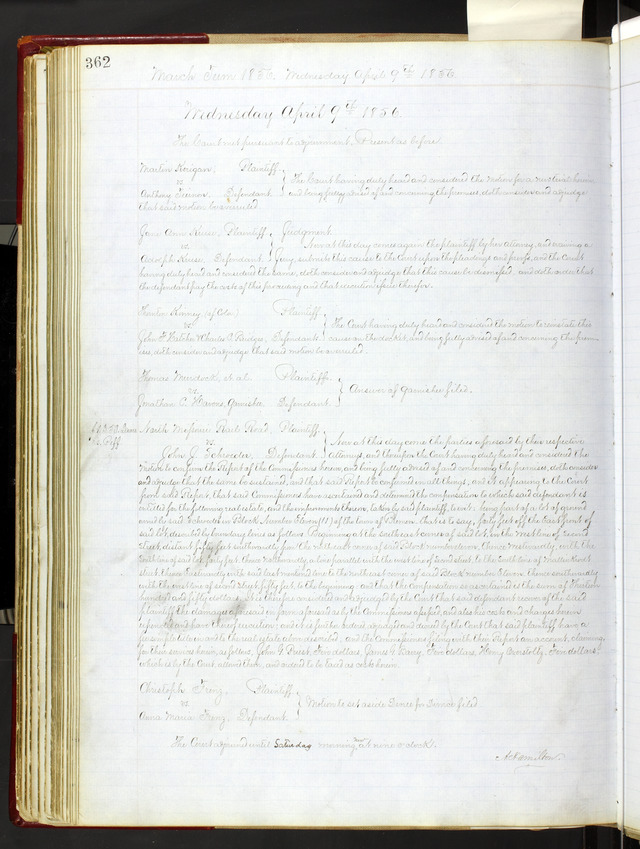 362
March Term 1856. Wednesday April 9th 1856.
Wednesday April 9th 1856.
The Court met pursuant to adjournment. Present as before.
Plaintiff
vs. The Court having duly heard and considered the motion for a new trial herein
Anthony Defendant and being fully advised of and concerning the premises, doth consider and adjudge
that said motion be overruled.
Jane Ann Kruse, Plaintiff Judgment
vs. Now at this day comes again the plaintiff by her attorney, and waiving a
Adolph Kruse, Defendant Jury, submits this cause to the Court upon the pleadings and proofs, and the Court
having duly heard and considered the same, doth consider and adjudge that this cause be dismissed and doth order that
the defendant pay the costs of this proceeding and that execution issue therefor.
Kinney (of Color) Plaintiff
vs. The Court having duly heard and considered the motion to reinstate this
John F. Hatcher & Charles C. Bridges, Defendants cause on the docket, and being fully advised of and concerning the prem-
ises, doth consider and adjudge that said motion be overruled.
Thomas Murdock, et al. Plaintiffs
vs. Answer of Garnishee filed.
Jonathan C. Garnishee Defendant
North Missouri Rail Road, Plaintiff
vs. Now at this day come the parties aforesaid by their respective
John J. Defendant Attorneys, and thereupon the Court having duly heard and considered the
motion to confirm the Report of the Commissioners herein, and being fully advised of and concerning the premises, doth consider
and adjudge that the same be sustained, and that said Report be confirmed in all things, and it appearing to the Court
from said Report, that said Commissioners have ascertained and determined the compensation to which said defendant is
entitled for the following real estate, and the improvements thereon, taken by said plaintiff, to wit: being part of a lot of ground
owned by said in Block Number Eleven (11) of the town of Bremen, that is to say, forty feet off the East front of
said lot, described by boundary lines as follows: Beginning at the southeast corner of said lot, in the west line of Second
Street, distant fifty feet southwardly from the northeast corner of said Block number eleven, thence westwardly, with the
South line of said lot, forty feet, thence Northwardly, on a line parallel with the west line of second street, to the South line of
street, thence Eastwardly with said last mentioned line to the northeast corner of said Block number Eleven, thence southwardly
with the west line of second street, fifty feet to the beginning; and that the Compensation so ascertained is the sum of
hundred and fifty dollars, it is therefore considered and adjudged by the Court that said defendant recover of the said
plaintiff the damages aforesaid in form aforesaid by the Commissioners assessed, and also his costs and charges herein
expended, and have thereof execution; and it is further ordered, adjudged and decreed by the Court that said plaintiff have a
in and to the real estate above described, and the Commissioners filing with their Report an account, claiming,
for their services herein, as follows, John G. Priest, Five dollars, James G. Barry, Five dollars, Henry Five dollars
which is by the Court allowed them, and ordered to be taxed as costs herein.
Christoph Plaintiff
vs. Motion to set aside Decree for Divorce filed.
Anna Maria Defendant
The Court adjourns until Saturday morning next at nine o'clock.
A Hamilton